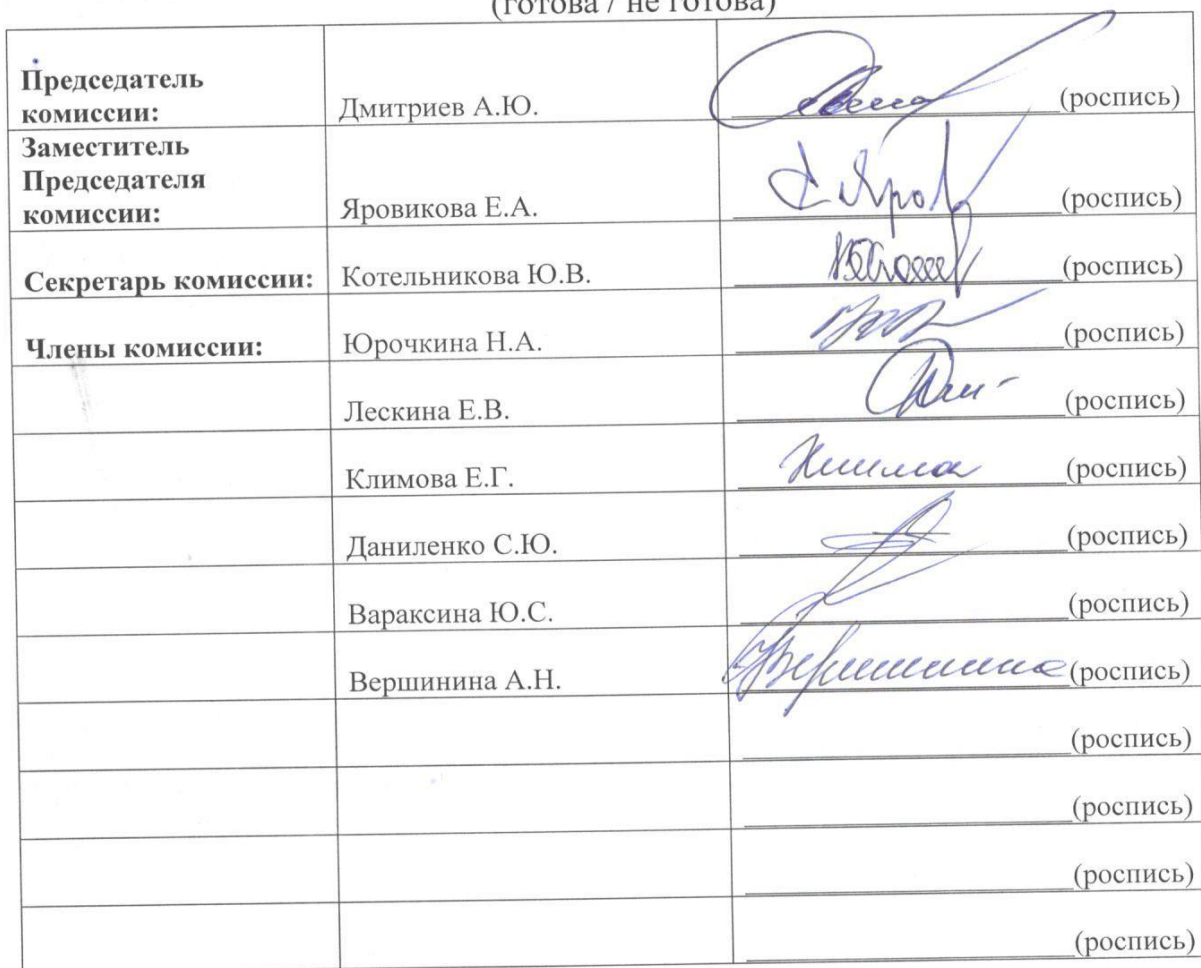 (готова / не готова)
Председатель
комиссии:
Дмитриев А.Ю.
(роспись)
Заместитель
Председателя
комиссии:
Яровикова Е.А.
(роспись)
Секретарь комиссии:
Котельникова Ю.В.
(роспись)
Члены комиссии:
Юрочкина Н.А.
(роспись)
Лескина Е.В.
(роспись)
Климова Е.Г.
(роспись)
Даниленко С.Ю.
(роспись)
Вараксина Ю.С.
(роспись)
Вершинина А.Н.
(роспись)
(роспись)
(роспись)
(роспись)
(роспись)